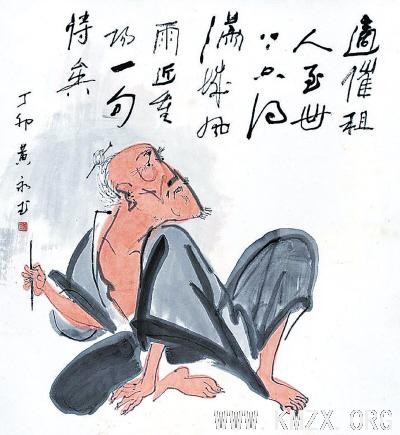 適催租
人至世
只得
满城風
雨近重
陽一句
矣
丁卯黄永玉
WWW.KWZX.ORG